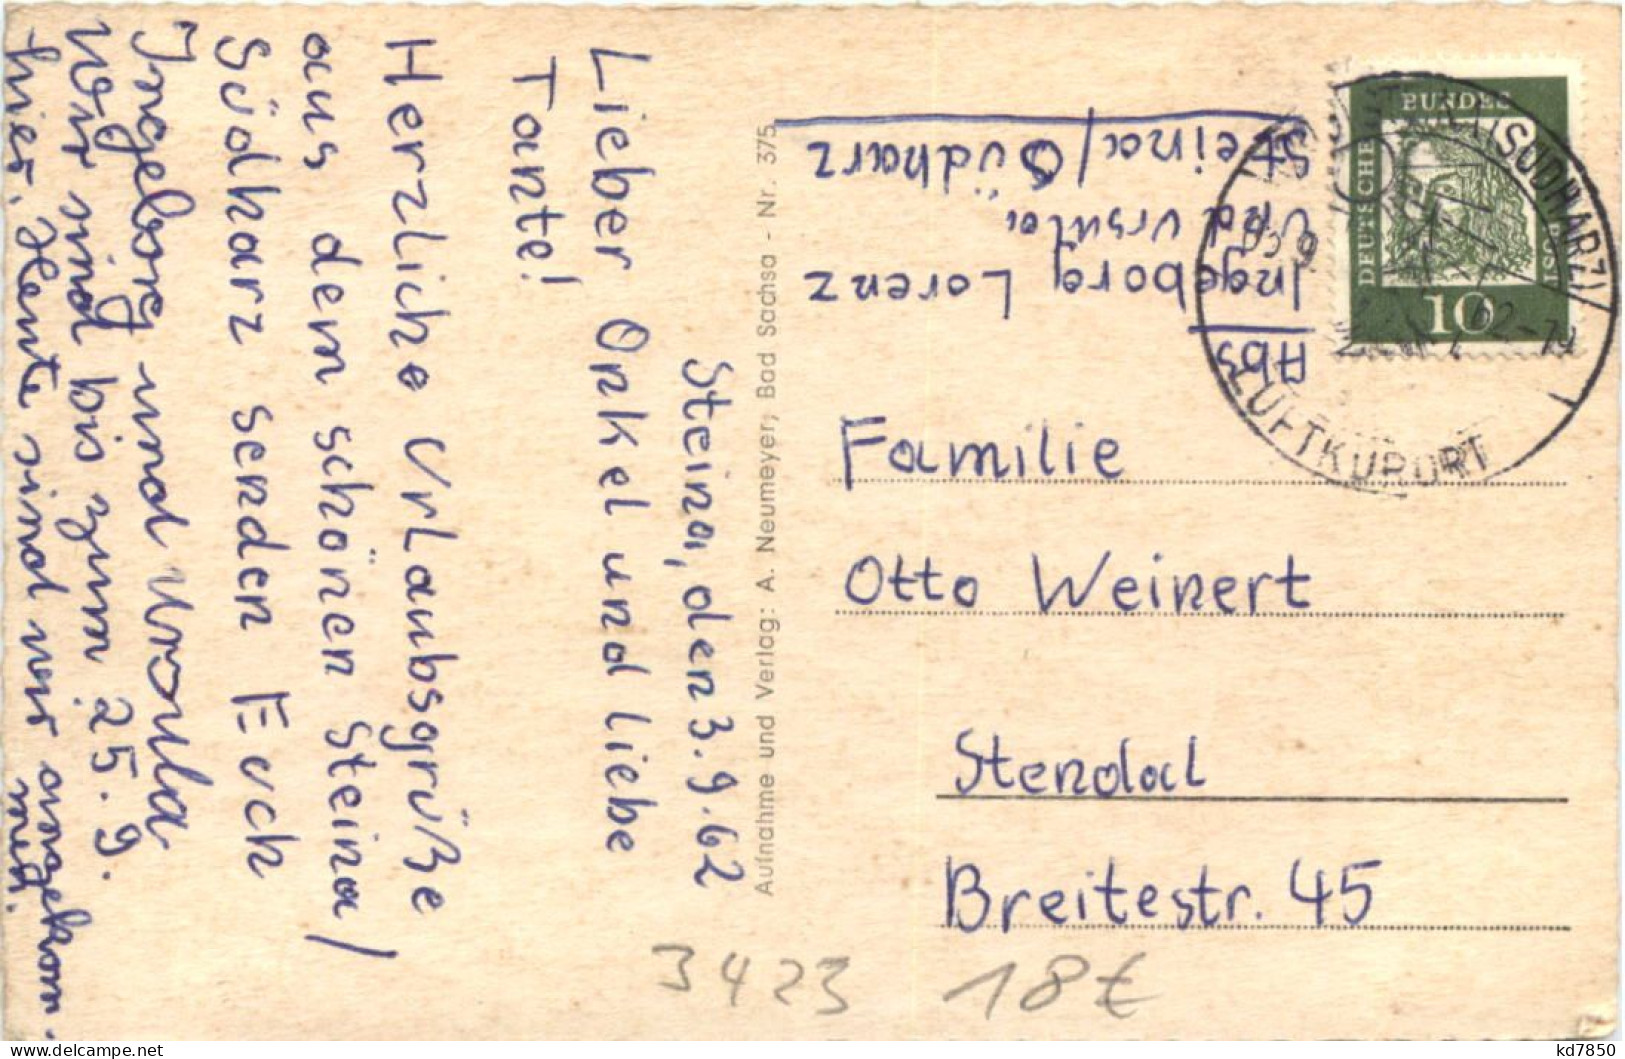 Steina, den 3. 9. 62
Lieber Onkel und liebe
Tante!
Herzliche Urlaubsgrüße
aus dem schönen Steina/
Südharz senden Euch
Ingeborg und Ursula
Wir sind bis zum 25. 9.
hier. Heute sind wir angekom-
men.
Aufnahme und Verlag: A. Neumeyer, Bad Sachsa - Nr. 375
Abs
Ingeborg Lorenz
und Ursula
Steina/Südharz
DEUTSCHE
BUNDES
POST
10
(SÜDHARZ)
LUFTKURORT
Familie
Otto Weinert
Stendal
Breitestr. 45
3423
18€
delcampe.net
kd7850